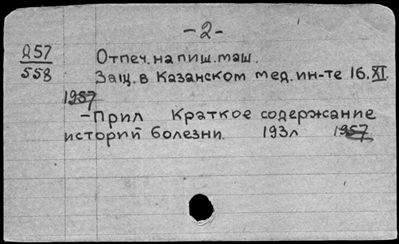 -2-
Д57
558
Отпеч. на пиш. маш.
Защ. в Казанском мед. ин-те 16. XI.
1957
-Прил Краткое содержание
историй болезни. 193л 1957